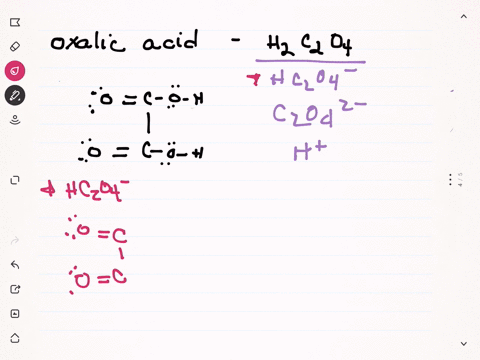 oxalic acid - H2C2O4
HC2O4-
:O=C-O-H
C2O4 2-
:O=C-O-H
H+
HC2O4-
:O=C
:O=C